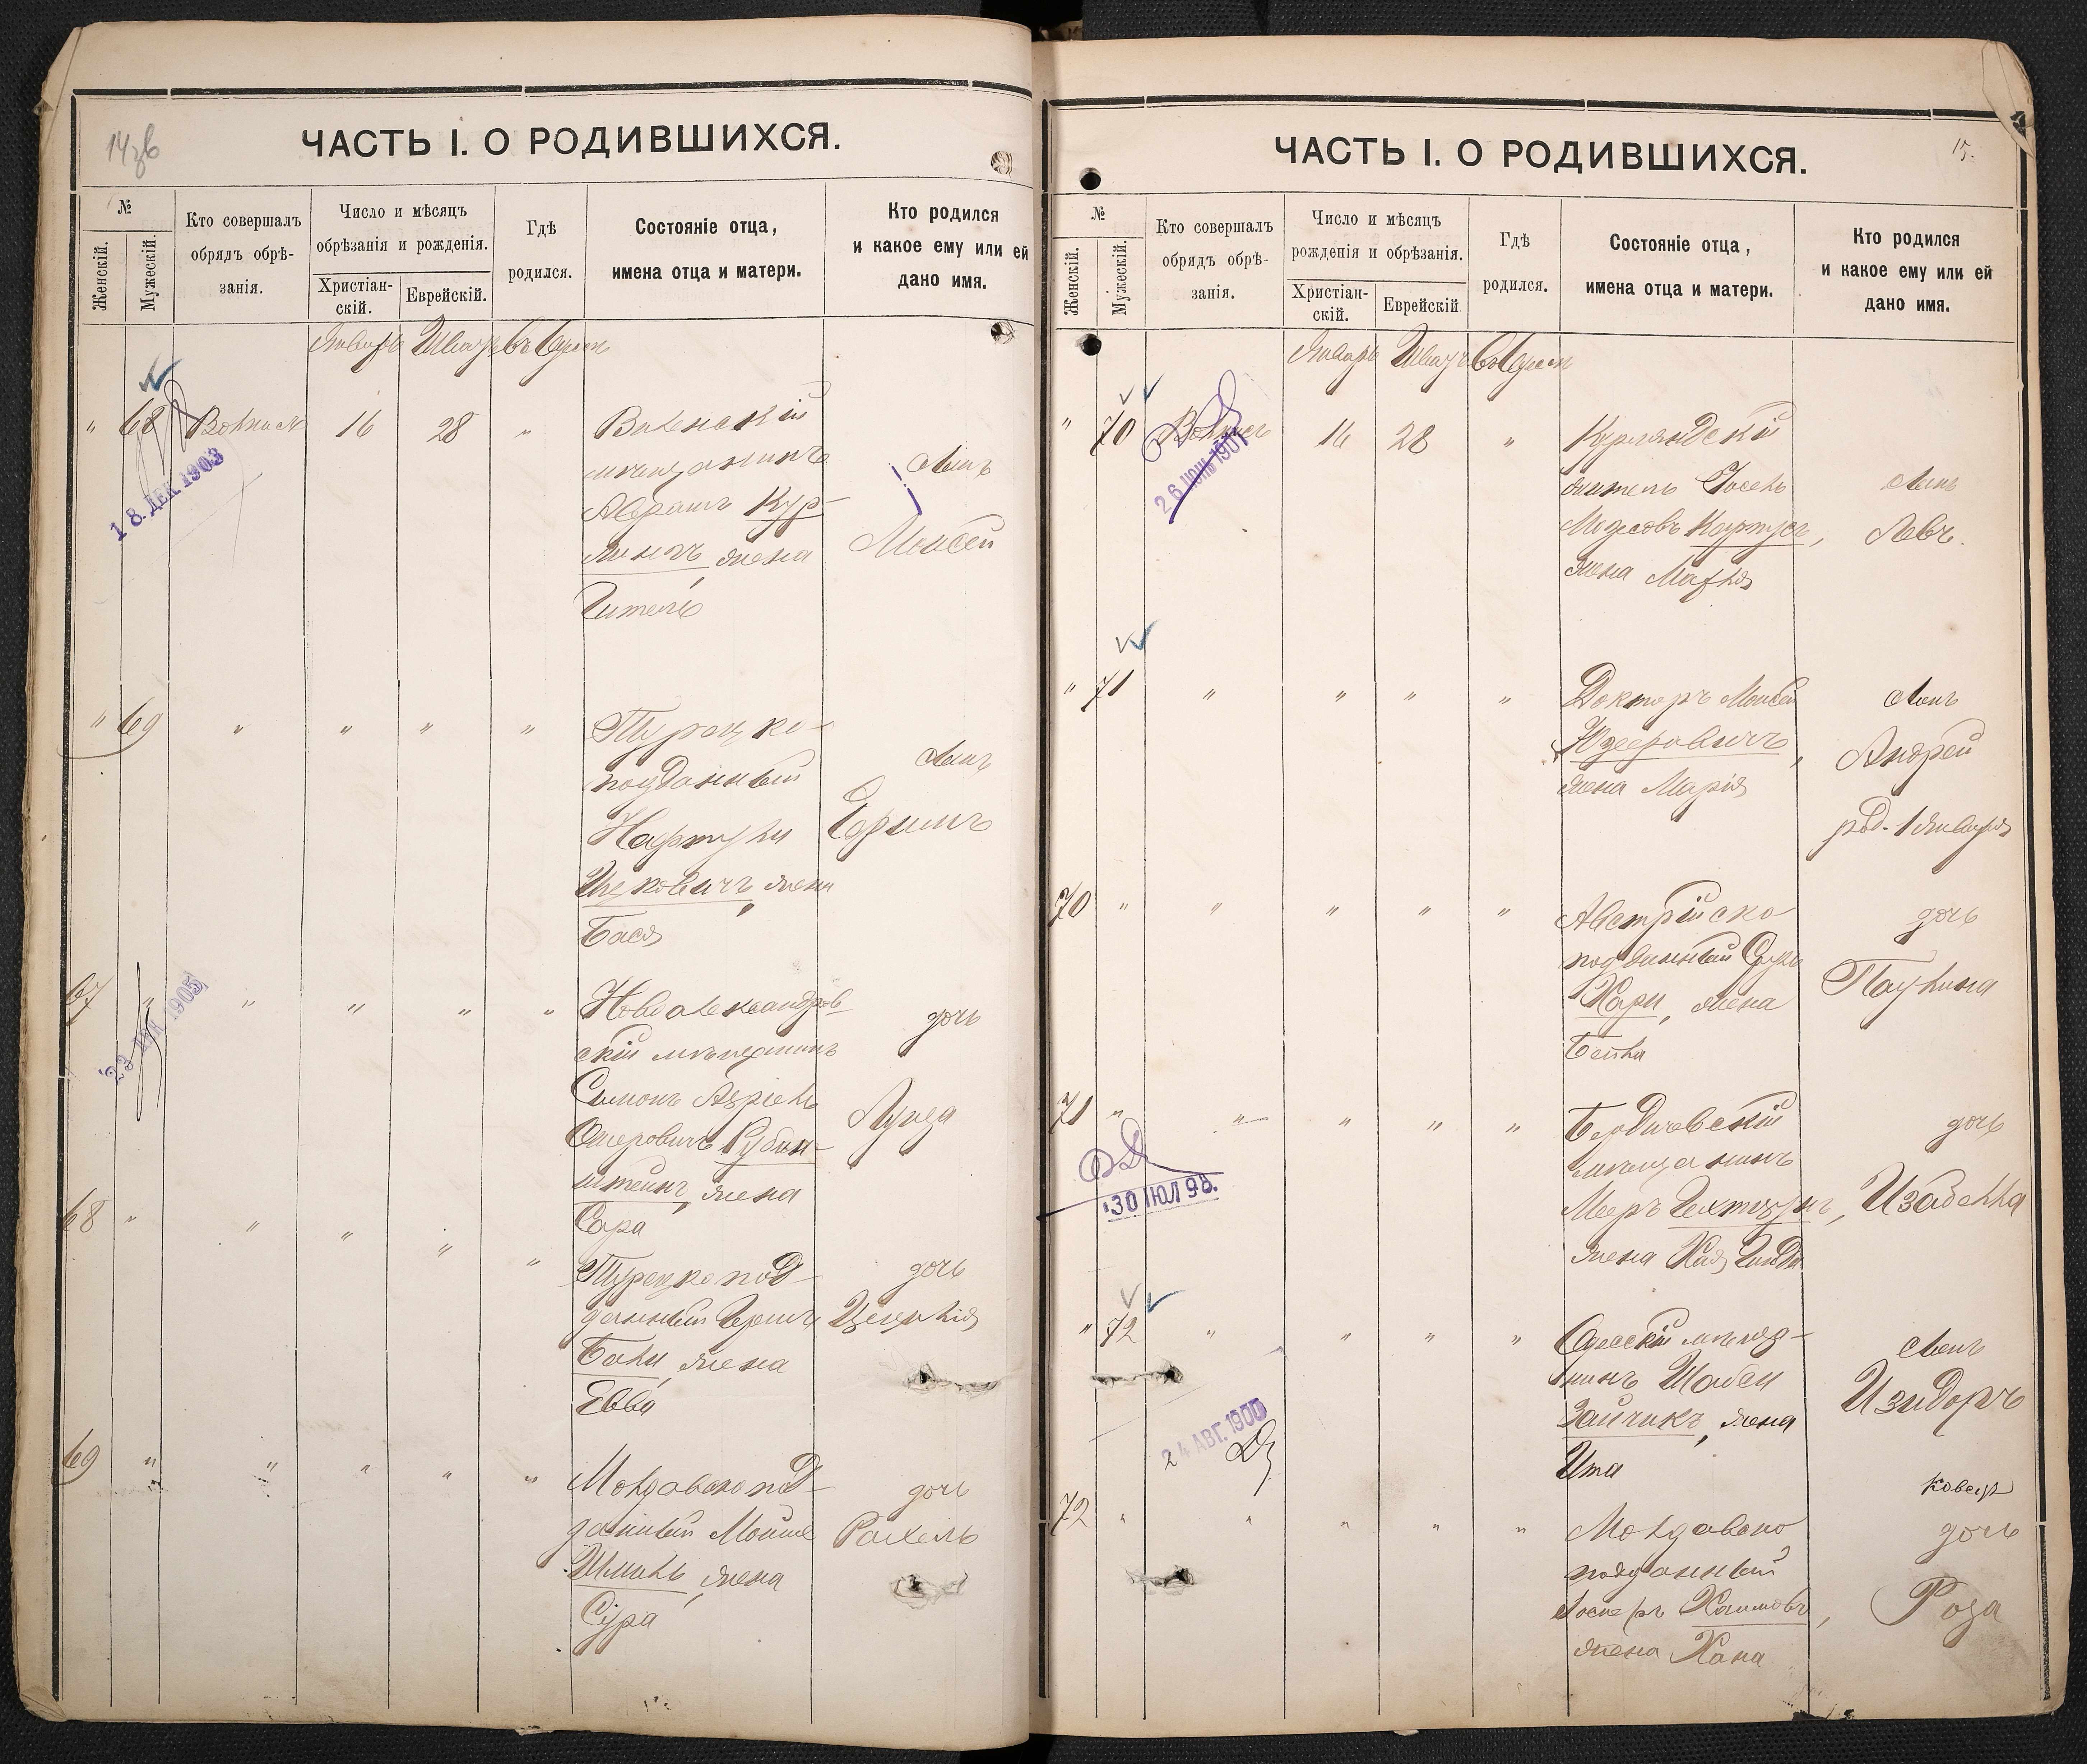 14 зв
ЧАСТЬ I. О РОДИВШИХСЯ.
№
Женскій.
Мужескій.
Кто совершалъ
обрядъ обрѣ-
занія.
Число и мѣсяцъ
обрѣзанія и рожденія.
Христіан-
скій.
Еврейскій.
Гдѣ
родился.
Состояніе отца,
имена отца и матери.
Кто родился
и какое ему или ей
дано имя.
Январь Шватъ въ Одессѣ
" 68 16 28 "
Виленскій
мѣщанинъ
Абрамъ Кур-
жена
Гитель
сынъ
Моисей
18. ДЕК. 1903
" 69 " " " " "
Турецко-
подданный
Нафтули
Ицковичъ, жена
Бася
сынъ
Ефримъ
67 " " " " "
Новоалександров-
скій мѣщанинъ
Симонъ Азріель
Ошеровичъ Рубин-
штейнъ, жена
Сара
дочь
Луиза
23 1905
68 " " " " "
Турецко под-
данный Гершъ
жена
Евва
дочь
Цецилія
69 " " " " "
Молдавско под-
данный Мойше
Шмиль, жена
Сура
дочь
Рахель
15.
ЧАСТЬ I. О РОДИВШИХСЯ.
№
Женскій.
Мужескій.
Кто совершалъ
обрядъ обрѣ-
занія.
Число и мѣсяцъ
рожденія и обрѣзанія.
Христіан-
скій.
Еврейскій
Гдѣ
родился.
Состояніе отца,
имена отца и матери.
Кто родился
и какое ему или ей
дано имя.
Январь Шватъ въ Одессѣ
" 70 16 28 "
Курляндскій
житель Іосель
Карпусъ,
жена Малка
сынъ
Левъ.
26 ІЮН. 1901
" 71 " " " "
Докторъ Моисей
Юзефовичъ,
жена Марія
сынъ
Андрей
род. 1 Января
70 " " " " "
Австрійско
подданный Сруль
Хари, жена
Бейла
дочь
Паулина
71 " " " " "
Бердичевскій
мѣщанинъ
Мееръ Гехтманъ,
жена Хая Гинда
дочь
Изабелла
30 ІЮЛ 98.
" 72 " " " "
Одесскій мѣща-
нинъ Шабси
Зайчикъ, жена
Ита
сынъ
Изидоръ
24 АВГ. 1900
72 " " " " "
Молдавско
подданный
Хаимовъ,
жена Хана
дочь
Роза